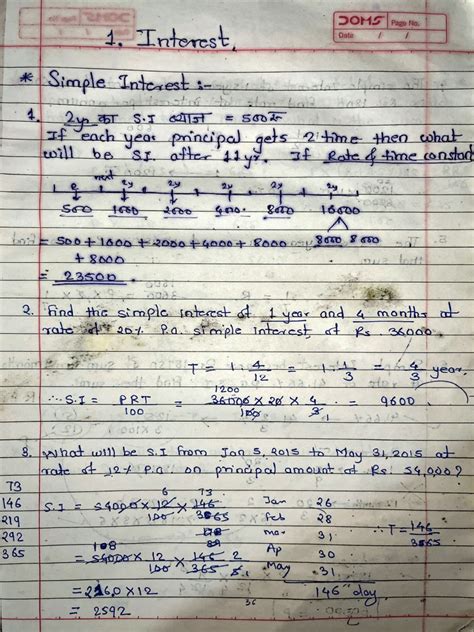 DOMS Page No.
Date / /
1. Interest.
* Simple Interest :-
1. 2yr का S.I ब्याज = 500रु
If each year principal gets 2 time then what
will be SI. after 11yr. If Rate & time constant
next 2y 2y 2y 2y 2y
500 1000 2000 4000 8000 16000
= 500 + 1000 + 2000 + 4000 + 8000 8000 8000
+ 8000
= 23500.
2. Find the simple interest of 1 year and 4 months at
rate of 20% P.a. simple interest, of Rs 36000
T = 1 4/12 = 1 1/3 = 4/3 year.
∴ S.I = PRT/100 = 36000 × 20 × 4 / 100 3 = 9600.
1200
3. What will be S.I from Jan 5, 2015 to May 31, 2015 at
rate of 12% P.a. on principal amount of Rs. 54,000?
73
146
219
292
365
S.I = 54000 × 12/100 × 146/365
6 73
Jan 26
feb 28
mar 31
Ap 30
May 31
146 day.
∴ T = 146/365
= 54000 × 12/100 × 146/365 2 5
108
= 2160 × 12
= 2592